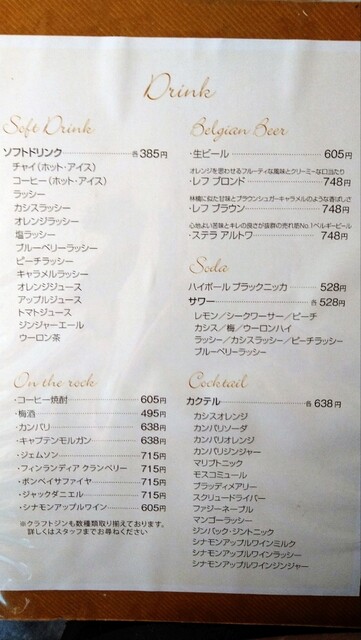 Drink
Soft Drink
ソフトドリンク 各385円
チャイ（ホット・アイス）
コーヒー（ホット・アイス）
ラッシー
カシスラッシー
オレンジラッシー
塩ラッシー
ブルーベリーラッシー
ピーチラッシー
キャラメルラッシー
オレンジジュース
アップルジュース
トマトジュース
ジンジャーエール
ウーロン茶
On the rock
・コーヒー焼酎 605円
・梅酒 495円
・カンパリ 638円
・キャプテンモルガン 638円
・ジェムソン 715円
・フィンランディア クランベリー 715円
・ボンベイサファイヤ 715円
・ジャックダニエル 715円
・シナモンアップルワイン 605円
※クラフトジンも数種類取り揃えております。
詳しくはスタッフまでお尋ねください
Belgian Beer
・生ビール 605円
オレンジを思わせるフルーティな風味とクリーミーな口当たり
・レフ ブロンド 748円
林檎に似た甘味とブラウンシュガーキャラメルのような香ばしさ
・レフ ブラウン 748円
心地よい苦味とキレの良さが抜群の売れ筋No.1ベルギービール
・ステラ アルトワ 748円
Soda
ハイボール ブラックニッカ 528円
サワー 各528円
レモン／シークワーサー／ピーチ
カシス／梅／ウーロンハイ
ラッシー／カシスラッシー／ピーチラッシー
ブルーベリーラッシー
Cocktail
カクテル 各638円
カシスオレンジ
カンパリソーダ
カンパリオレンジ
カンパリジンジャー
マリブトニック
モスコミュール
ブラッディメアリー
スクリュードライバー
ファジーネーブル
マンゴーラッシー
ジンバック・ジントニック
シナモンアップルワインミルク
シナモンアップルワインラッシー
シナモンアップルワインジンジャー